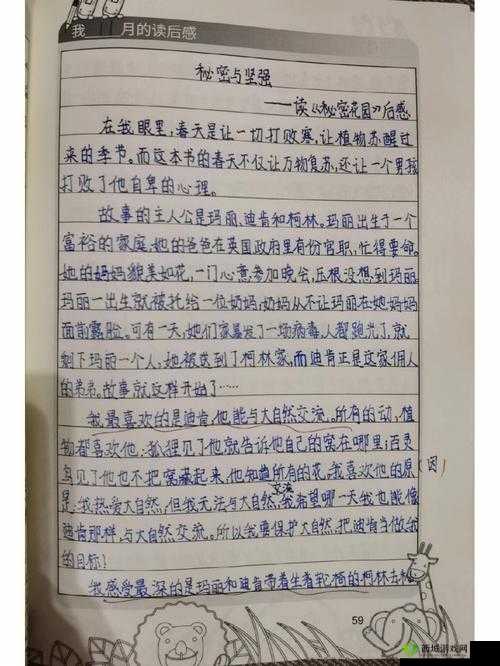 我 月的读后感
秘密与坚强
——读《秘密花园》后感
在我眼里,春天是让一切打败寒,让植物苏醒过
来的季节。而这本书的春天不仅让万物复苏,还让一个男孩
打败了他自卑的心理。
故事的主人公是玛丽、迪肯和柯林。玛丽出生于一个
富裕的家庭,她的爸爸在英国政府里有份官职,忙得要命。
她的妈妈貌美如花,一门心意参加晚会,压根没想到玛丽。
玛丽一出生就被托给一位奶妈,奶妈从不让玛丽在她妈妈
面前露脸。可有一天,她们家暴发了一场病毒,人都跑光了,就
剩下玛丽一个人,她被送到了柯林家,而迪肯正是这家佣人
的弟弟。故事就这样开始了……
我最喜欢的是迪肯,他能与大自然交流。所有的动,植
物都喜欢他:狐狸见了他就告诉他自己的窝在哪里;百灵
鸟见了他也不把窝藏起来,他知道所有的花。我喜欢他的原(因)
是:我热爱大自然,但我无法与大自然交流,我希望哪一天我也能像
迪肯那样,与大自然交流。所以我要保护大自然,把迪肯当做我
的目标!
我感受最深的是玛丽和迪肯带着坐着轮椅的柯林去秘
59
西城游戏网